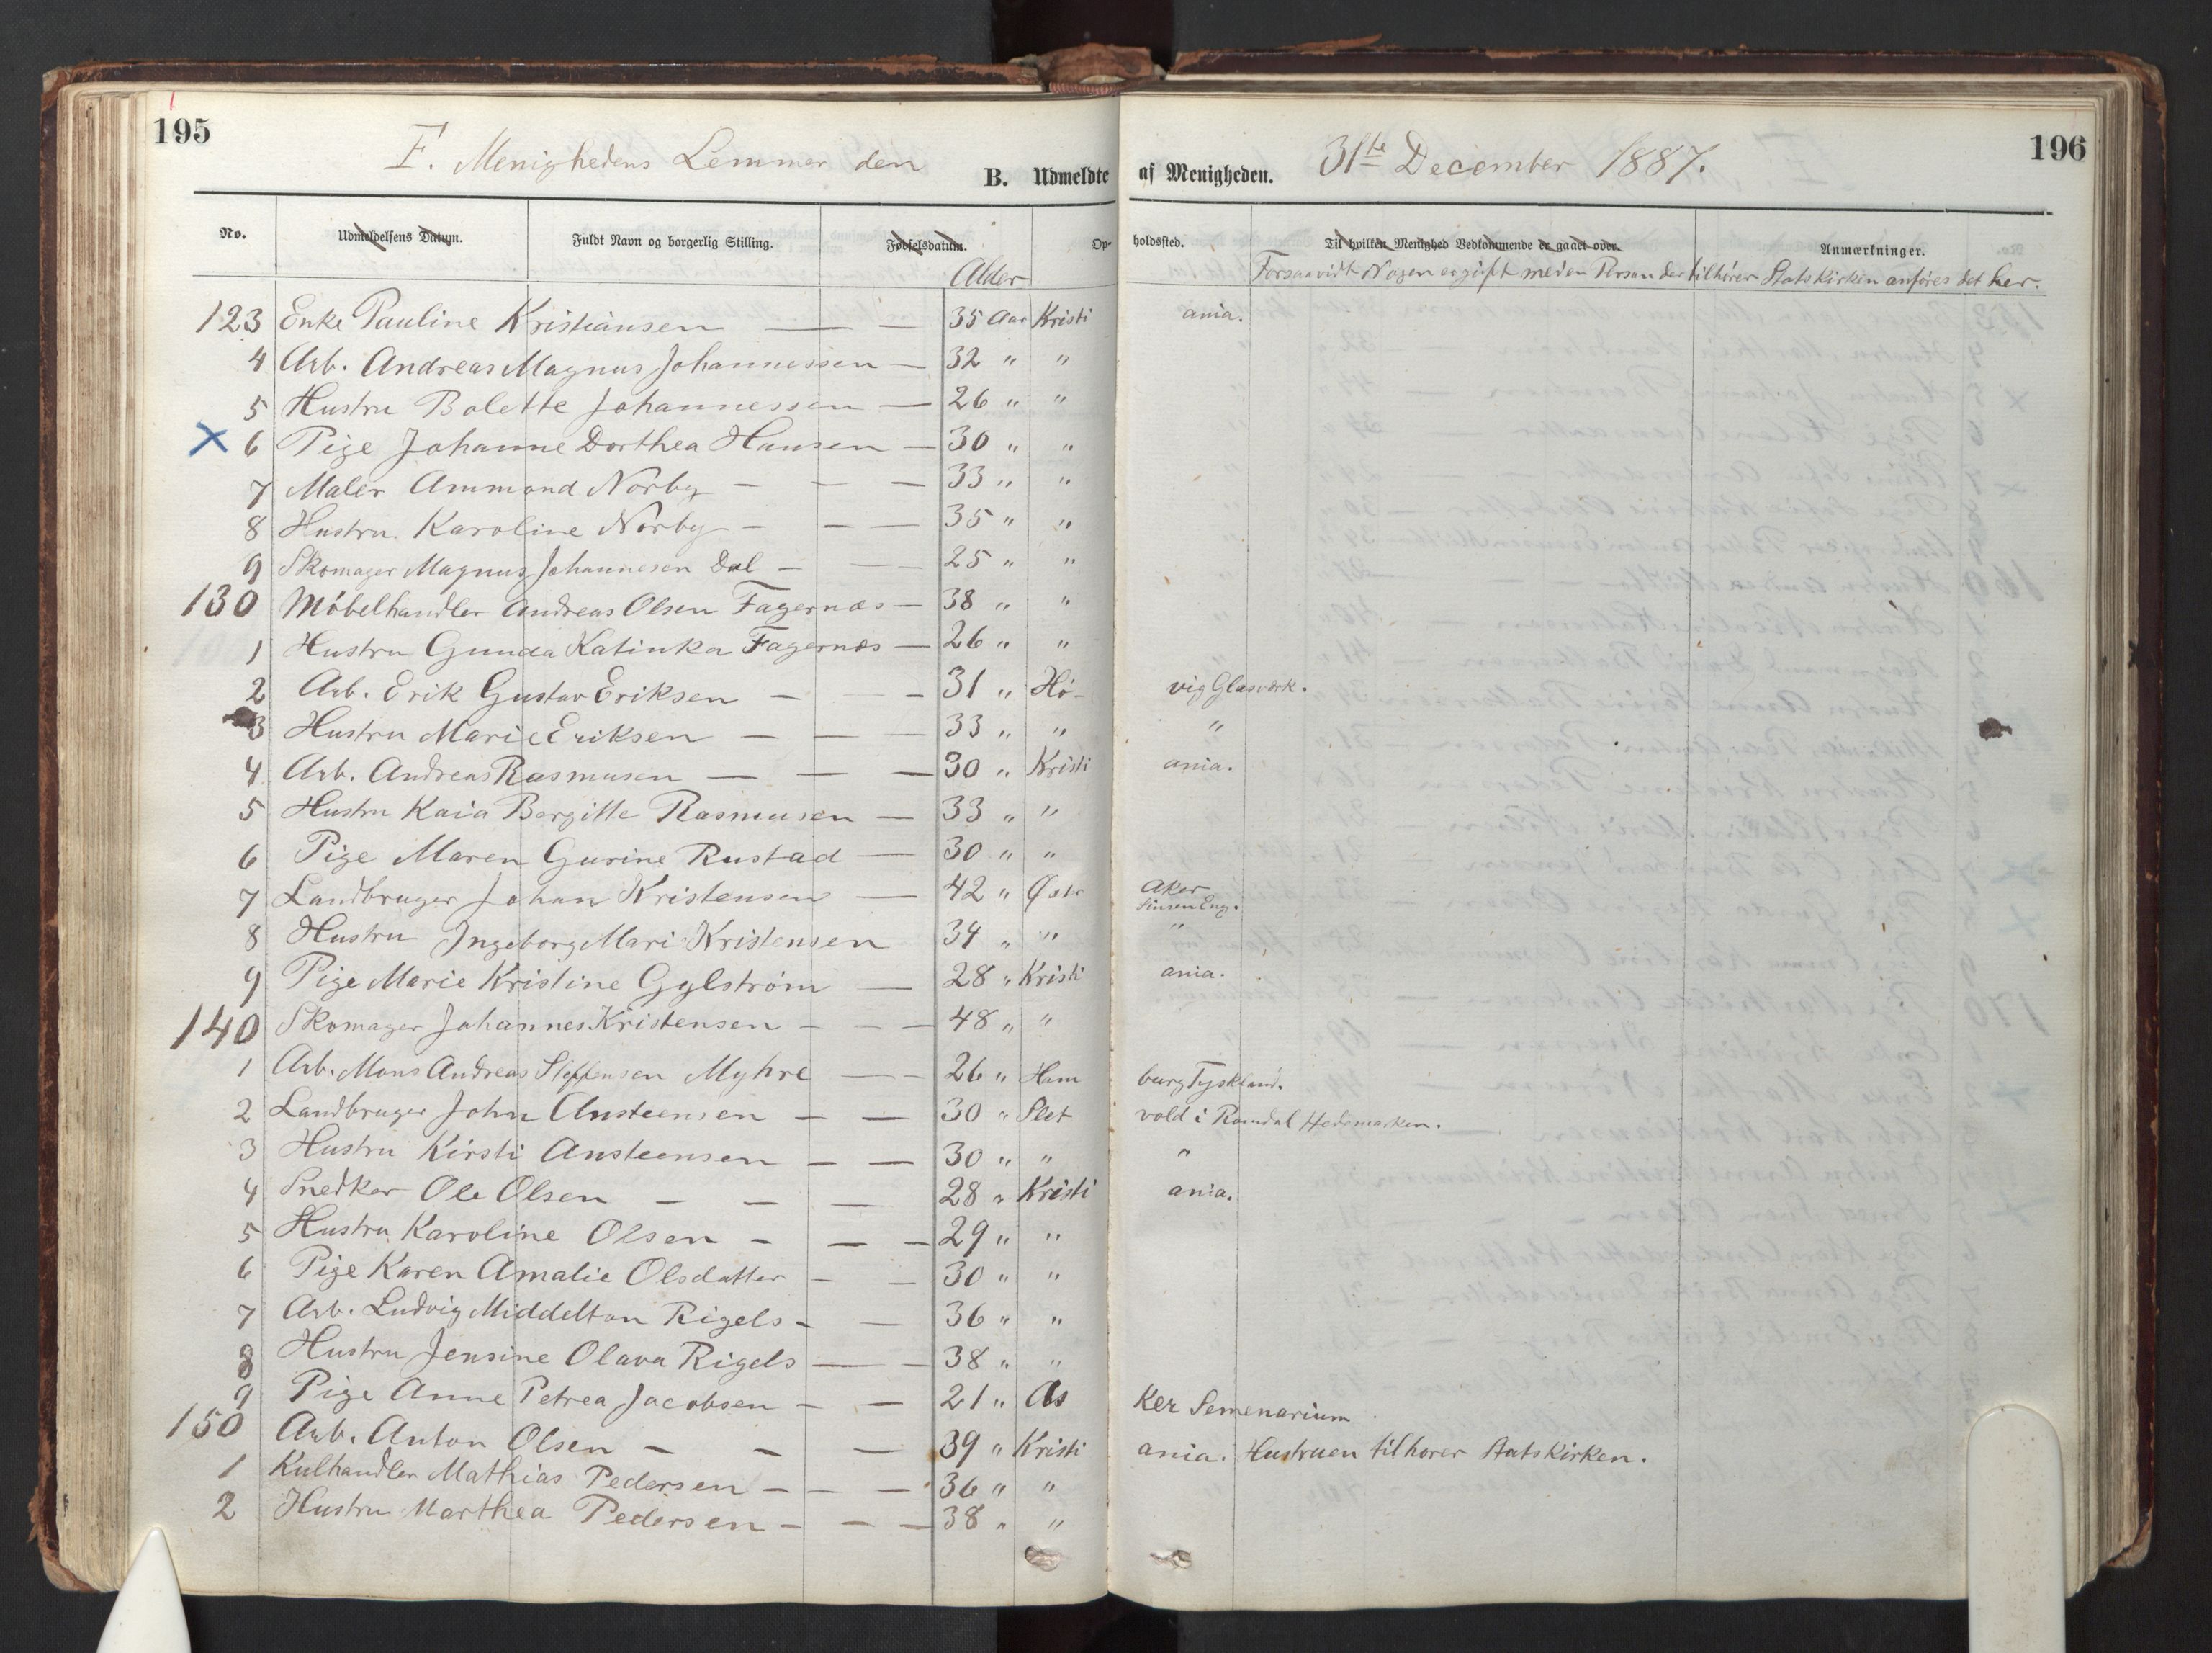 195
196
F. Menighedens Lemmer den 31te December 1887.
B. Udmeldte af Menigheden.
No. Udmeldelsens Datum. Fuldt Navn og borgerlig Stilling. Fødselsdatum. Opholdssted. Til hvilken Menighed Vedkommende er gaaet over. Anmærkninger.
Alder Forsaavidt Nogen er gift med en Person der tilhører Statskirken anføres det her.
123 Enke Pauline Kristiansen — — 35 Aar Kristiania.
4 Arb. Andreas Magnus Johannessen — 32 " "
5 Hustru Bolette Johannessen — 26 " "
X 6 Pige Johanne Dorthea Hansen — 30 " "
7 Maler Ammond Norby — — — 33 " "
8 Hustru Karoline Norby — — — 35 " "
9 Skomager Magnus Johannesen Dal — — — 25 " "
130 Møbelhandler Andreas Olsen Fagernæs — 38 " "
1 Hustru Gunda Katinka Fagernæs — 26 " "
2 Arb. Erik Gustav Eriksen — — 31 " Høvig Glasværk.
3 Hustru Marie Eriksen — — — 33 " " "
4 Arb. Andreas Rasmusen — — — 30 " Kristiania.
5 Hustru Kaia Bergitte Rasmusen — 33 " "
6 Pige Maren Gurine Rustad — 30 " "
7 Landbruger Johan Kristensen — 42 " Østr Aker Sinsen Eng.
8 Hustru Ingeborg Mari Kristensen 34 " " "
9 Pige Marie Kristine Gylstrøm — 28 " Kristiania.
140 Skomager Johannes Kristensen — — — 48 " "
1 Arb. Mons Andreas Steffensen Myhre — — 26 " Hamburg Tyskland.
2 Landbruger John Austeensen — — 30 " Sletvold i Romdal Hedemarken.
3 Hustru Kirsti Austeensen — — 30 " " "
4 Snedker Ole Olsen — — — 28 " Kristiania.
5 Hustru Karoline Olsen — — — 29 " "
6 Pige Karen Amalie Olsdatter — — 30 " "
7 Arb. Ludvig Middelton Rigels — — 36 " "
8 Hustru Jensine Olava Rigels — — 38 " "
9 Pige Anne Petrea Jacobsen — — 21 " Asker Semenarium
150 Arb. Anton Olsen — — — 39 " Kristiania. Hustruen tilhører Statskirken.
1 Kulhandler Mathias Pedersen — — — 36 " "
2 Hustru Marthea Pedersen — — — 38 " "